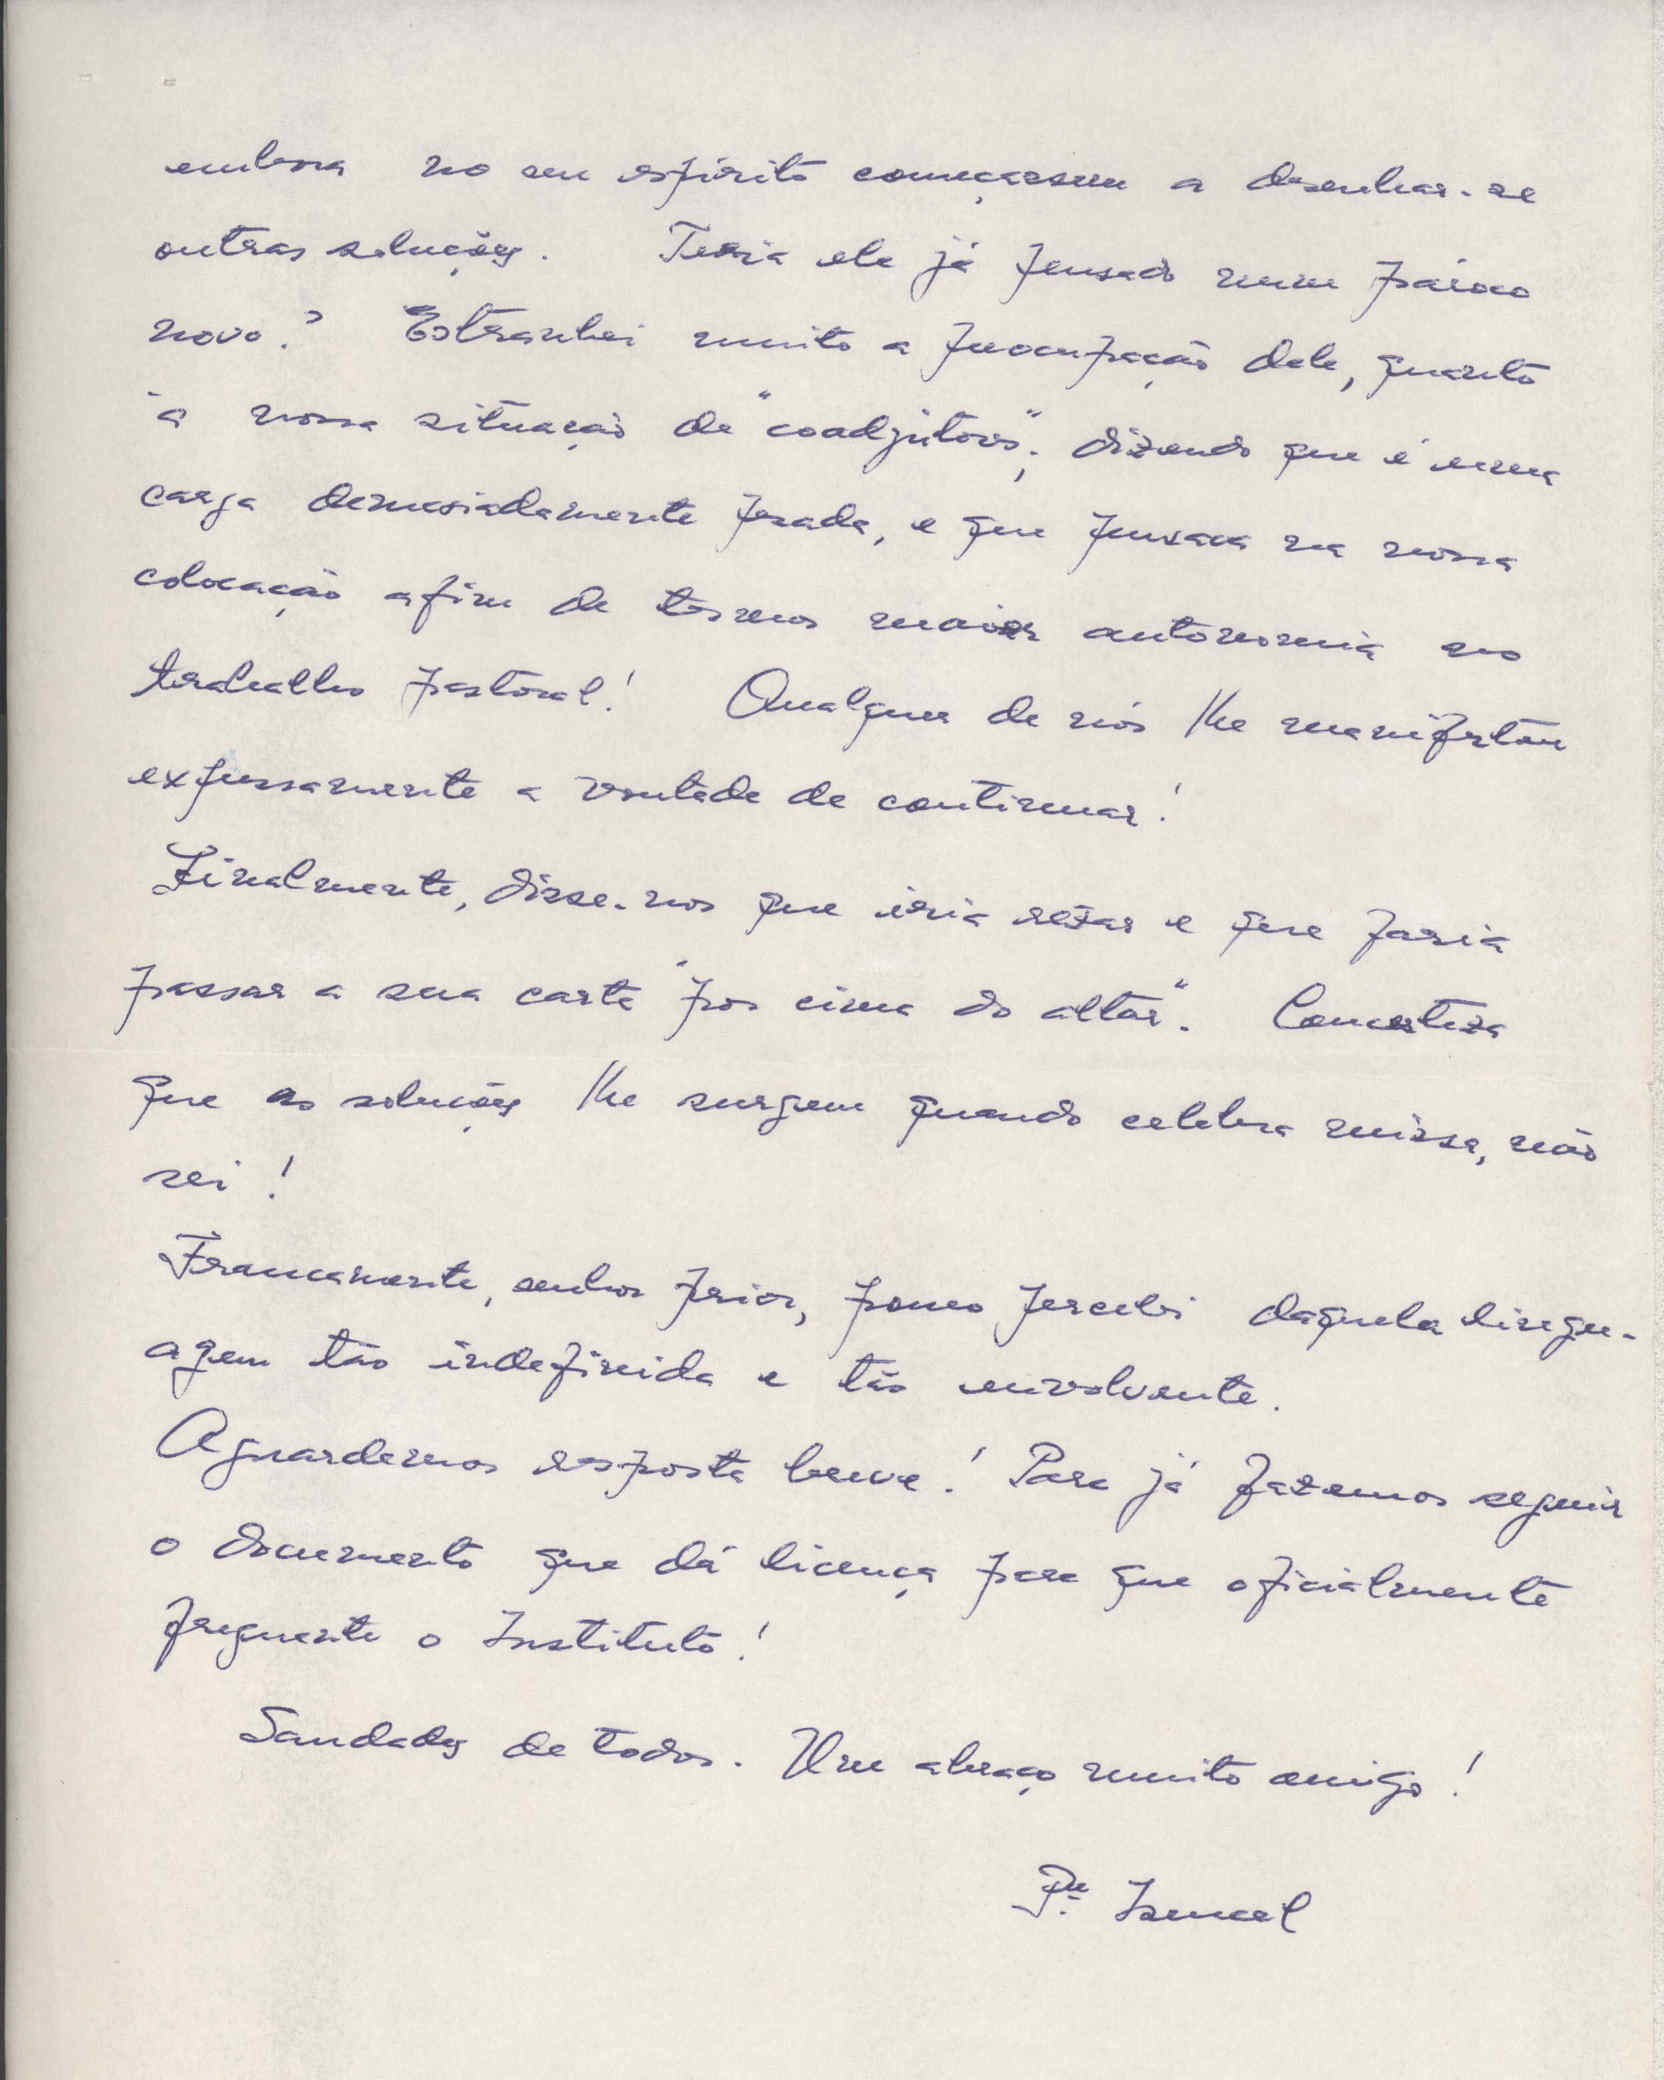 embora no seu espírito começassem a desenhar-se
outras soluções. Teria ele já pensado num pároco
novo? Estranhei muito a preocupação dele, quanto
à nossa situação de "coadjutores", dizendo que é uma
carga demasiadamente pesada, e que pensava na nossa
colocação afim de termos maior autonomia no
trabalho pastoral! Qualquer de nós lhe manifestou
expressamente a vontade de continuar!
Finalmente, disse-nos que iria rezar e que faria
passar a sua carta "por cima do altar". Concerteza
que as soluções lhe surgem quando celebra missa, não
sei!
Francamente, senhor Prior, pouco percebi daquela lingu-
agem tão indefinida e tão envolvente.
Aguardemos resposta breve! Para já fazemos seguir
o documento que dá licença para que oficialmente
frequente o Instituto!
Saudades de todos. Um abraço muito amigo!
Pe. Ismael